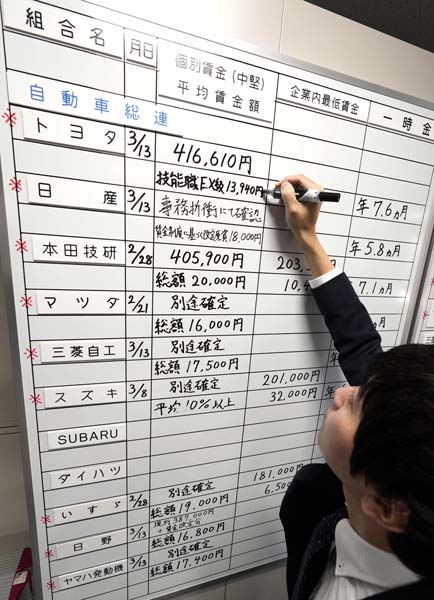 組合名 月日 個別賃金(中堅) 企業内最低賃金 一時金
平均賃金額
自動車総連
トヨタ 3/13 416,610円
技能職EX級13,940円 年7.6ヵ月
日産 3/13 専務折衝にて確認
賃金制度に基づく改定原資18,000円 年5.8ヵ月
本田技研 2/28 405,900円 203,
総額20,000円 10,4 7.1ヵ月
マツダ 2/21 別途確定
総額16,000円 ヵ月
三菱自工 3/13 別途確定
総額17,500円 年
スズキ 3/8 別途確定 201,000円
平均10%以上 32,000円 年
SUBARU
ダイハツ
いすゞ 2/28 別途確定 181,000円
総額19,000円 6,50
日野 3/13
総額16,800円
ヤマハ発動機 3/13 別途確定
総額17,400円